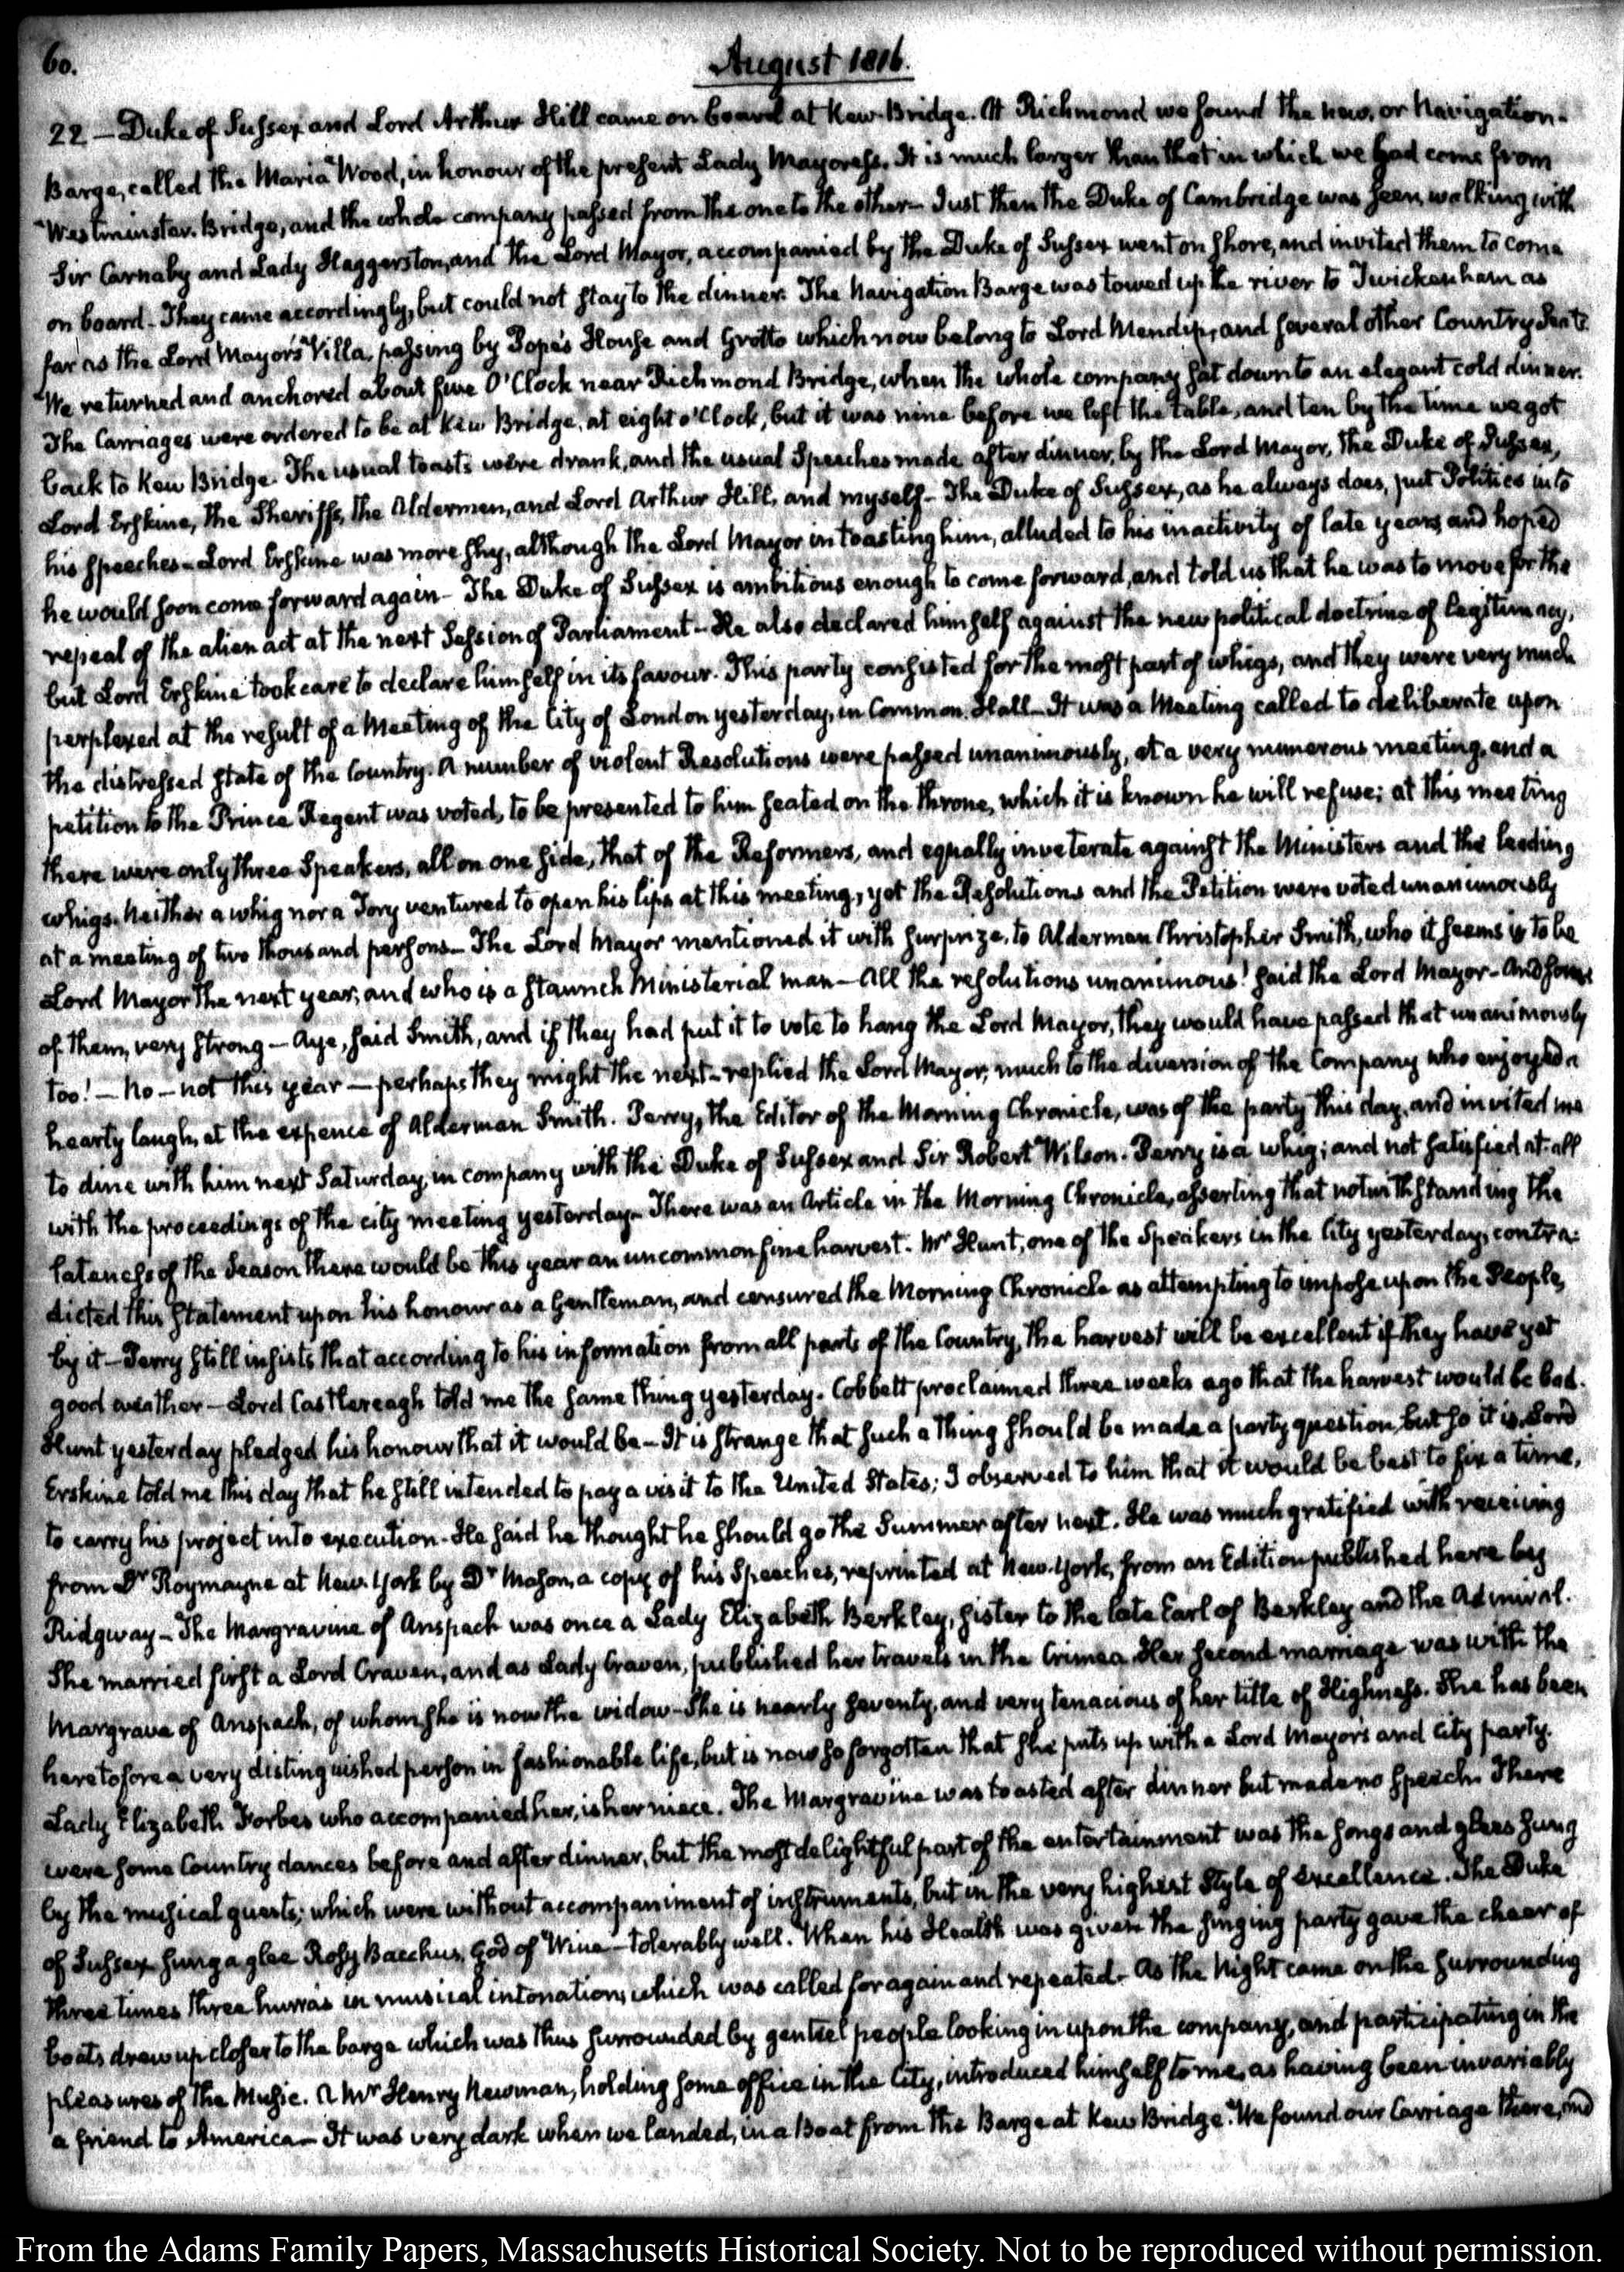 60.
August 1816.
22 — Duke of Sussex and Lord Arthur Hill came on board at Kew-Bridge. At Richmond we found the new, or Navigation-
Barge, called the Maria Wood, in honour of the present Lady Mayoress. It is much larger than that in which we had come from
Westminster Bridge, and the whole company passed from the one to the other — Just then the Duke of Cambridge was seen, walking with
Sir Carnaby and Lady Haggerston, and the Lord Mayor, accompanied by the Duke of Sussex went on shore, and invited them to come
on board — They came accordingly, but could not stay to the dinner. The Navigation Barge was towed up the river to Twickenham as
far as the Lord Mayor's Villa, passing by Pope's House and Grotto which now belong to Lord Mendip, and several other Country Seats.
We returned and anchored about five O'Clock near Richmond Bridge, when the whole company sat down to an elegant cold dinner.
The Carriages were ordered to be at Kew Bridge, at eight o'Clock, but it was nine before we left the table, and ten by the time we got
back to Kew Bridge. The usual toasts were drank, and the usual Speeches made after dinner, by the Lord Mayor, the Duke of Sussex,
Lord Erskine, the Sheriffs, the Aldermen, and Lord Arthur Hill, and myself — The Duke of Sussex, as he always does, put Politics into
his speeches — Lord Erskine was more shy, although the Lord Mayor in toasting him, alluded to his inactivity of late years, and hoped
he would soon come forward again — The Duke of Sussex is ambitious enough to come forward, and told us that he was to move for the
repeal of the alien act at the next Session of Parliament — He also declared himself against the new political doctrine of legitimacy,
but Lord Erskine took care to declare himself in its favour. This party consisted for the most part of whigs, and they were very much
perplexed at the result of a Meeting of the City of London yesterday, in Common Hall — It was a Meeting called to deliberate upon
the distressed state of the Country. A number of violent Resolutions were passed unanimously, at a very numerous meeting, and a
petition to the Prince Regent was voted, to be presented to him seated on the throne, which it is known he will refuse; at this meeting
there were only three Speakers, all on one side, that of the Reformers, and equally inveterate against the Ministers and the leading
whigs. Neither a whig nor a Tory ventured to open his lips at this meeting, yet the Resolutions and the Petition were voted unanimously
at a meeting of two thousand persons — The Lord Mayor mentioned it with surprize, to Alderman Christopher Smith, who it seems is to be
Lord Mayor the next year, and who is a staunch Ministerial man — All the resolutions unanimous! said the Lord Mayor — And some
of them, very strong — Aye, said Smith, and if they had put it to vote to hang the Lord Mayor, they would have passed that unanimously
too! — No — not this year — perhaps they might the next — replied the Lord Mayor; much to the diversion of the Company who enjoyed a
hearty laugh, at the expence of Alderman Smith. Perry, the Editor of the Morning Chronicle, was of the party this day, and invited me
to dine with him next Saturday, in company with the Duke of Sussex and Sir Robert Wilson. Perry is a whig; and not satisfied at all
with the proceedings of the city meeting yesterday — There was an Article in the Morning Chronicle, asserting that notwithstanding the
lateness of the Season there would be this year an uncommon fine harvest. Mr Hunt, one of the Speakers in the City yesterday, contra-
dicted this statement upon his honour as a Gentleman, and censured the Morning Chronicle as attempting to impose upon the People,
by it — Perry still insists that according to his information from all parts of the Country, the harvest will be excellent if they have yet
good weather — Lord Castlereagh told me the same thing yesterday. Cobbett proclaimed three weeks ago that the harvest would be bad.
Hunt yesterday pledged his honour that it would be — It is strange that such a thing should be made a party question, but so it is. Lord
Erskine told me this day that he still intended to pay a visit to the United States; I observed to him that it would be best to fix a time,
to carry his project into execution. He said he thought he should go the Summer after next. He was much gratified with receiving
from Dr Roymayne at New-York by Dr Mason, a copy of his Speeches, reprinted at New-York, from an Edition published here by
Ridgway — The Margravine of Anspach was once a Lady Elizabeth Berkley, sister to the late Earl of Berkley and the Admiral.
She married first a Lord Craven, and as Lady Craven, published her travels in the Crimea. Her second marriage was with the
Margrave of Anspach, of whom she is now the widow — She is nearly seventy, and very tenacious of her title of Highness. She has been
heretofore a very distinguished person in fashionable life, but is now so forgotten that she puts up with a Lord Mayor's and City party.
Lady Elizabeth Forbes who accompanied her, is her niece. The Margravine was toasted after dinner but made no speech. There
were some Country dances before and after dinner, but the most delightful part of the entertainment was the songs and glees sung
by the musical guests; which were without accompaniment of instruments, but in the very highest Style of excellence. The Duke
of Sussex sung a glee Rosy Bacchus, God of Wine — tolerably well. When his Health was given the singing party gave the cheer of
three times three hurras in musical intonation, which was called for again and repeated — As the Night came on the surrounding
boats drew up closer to the barge which was thus surrounded by genteel people looking in upon the company, and participating in the
pleasures of the Music. A Mr Henry Newman, holding some office in the City, introduced himself to me, as having been invariably
a friend to America — It was very dark when we landed, in a Boat from the Barge at Kew Bridge. We found our Carriage there, and
From the Adams Family Papers, Massachusetts Historical Society. Not to be reproduced without permission.